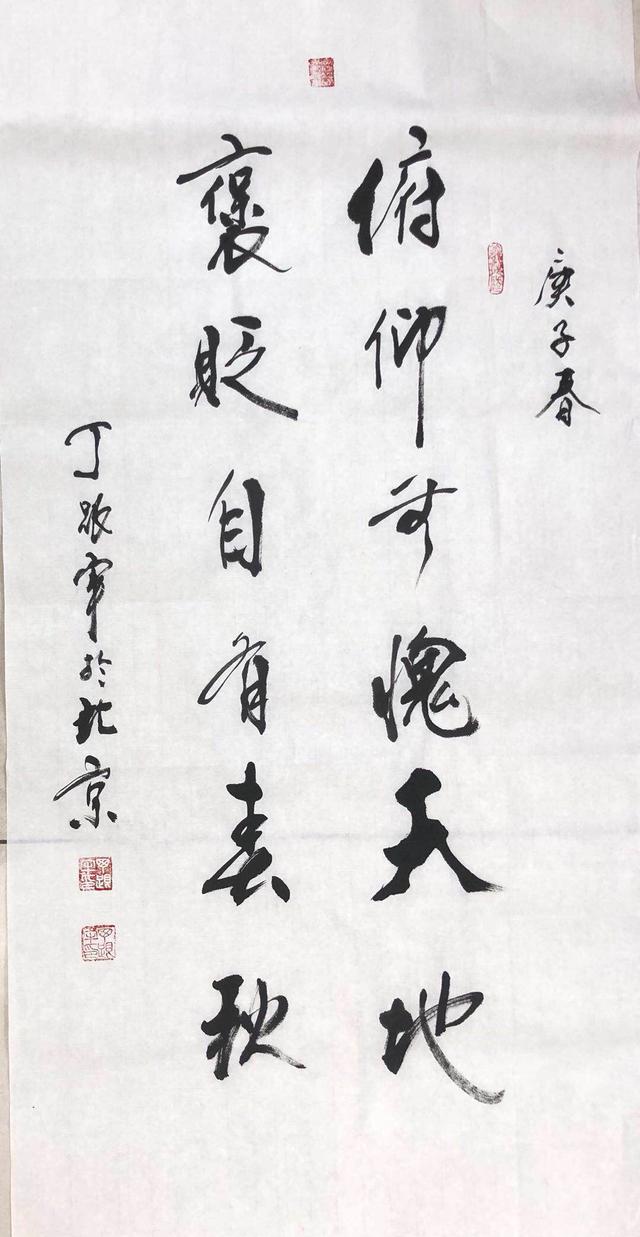 庚子春
俯仰无愧天地
褒貶自有春秋
丁於北京